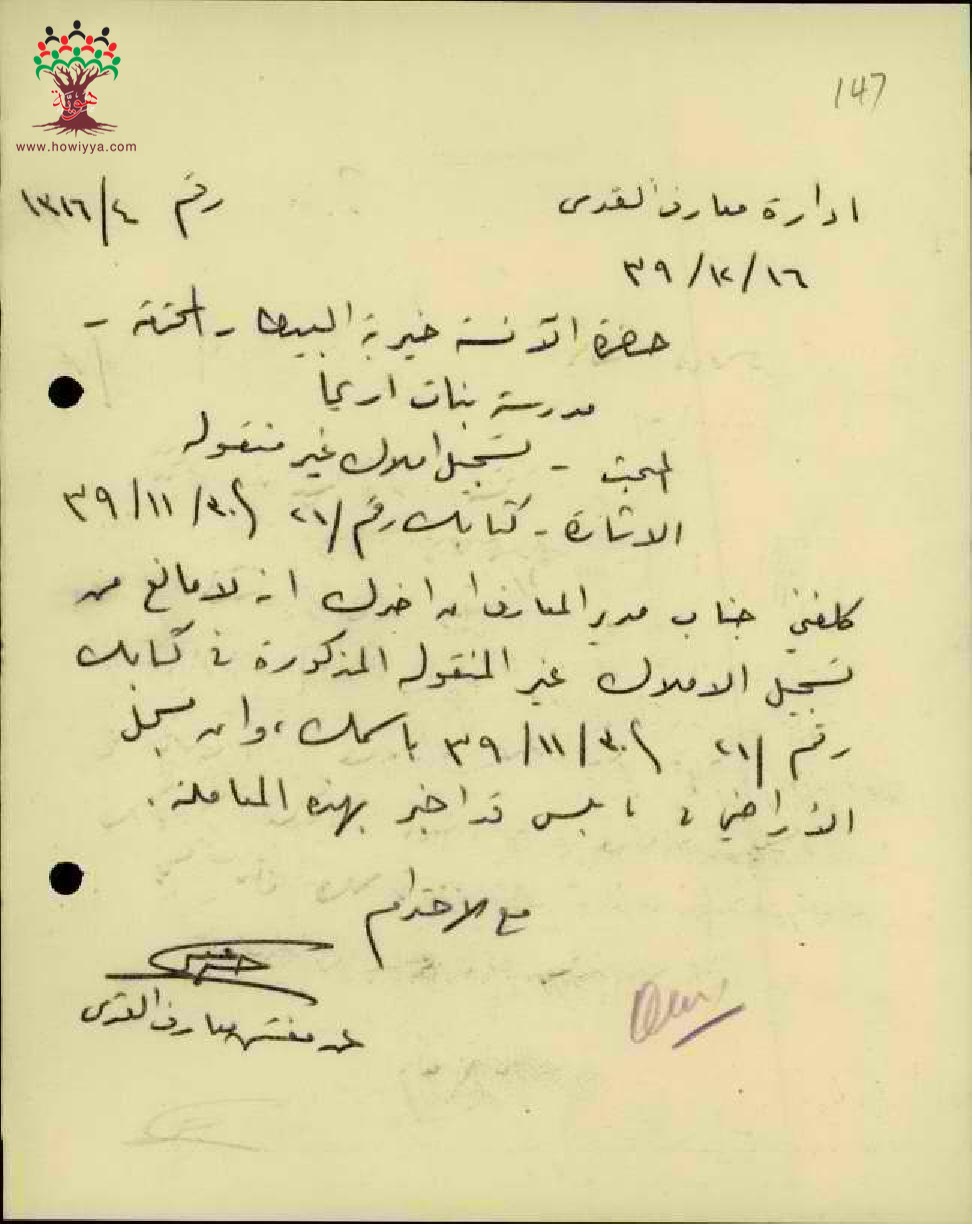 هوية
www.howiyya.com
147
ادارة معارف القدس
رقم ٤/١٣١٦
٣٩/١٢/١٦
حضرة الآنسة خيرية البيطار المحترمة -
مدرسة بنات اريحا
المبحث - تسجيل املاك غير منقوله
الاشارة - كتابك رقم /٢١ ٣٩/١١/٣٠
كلفني جناب مدير المعارف ان اخبرك انه لا مانع من
تسجيل الاملاك غير المنقوله المذكورة في كتابك
رقم /٢١ ٣٩/١١/٣٠ باسمك، وان مسجل
الأراضي في نابلس قد اخبر بهذه المعاملة.
مع الاحترام
عن مفتش معارف القدس